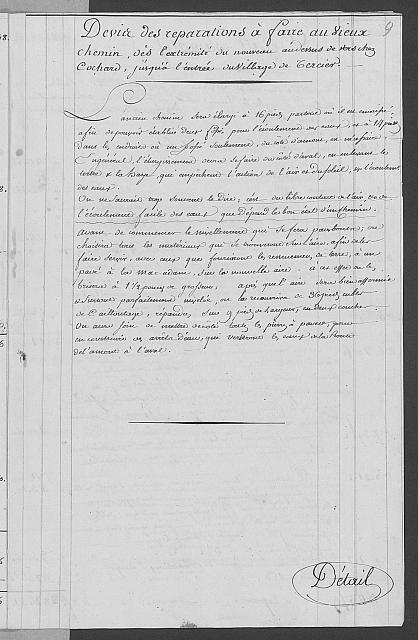 9
Devis des reparations à faire au vieux
chemin, dès l'extrémité du nouveau au dessus de vers chez
Cochard, jusqu'à l'entrée du village de Tercier.
L'ancien chemin sera élargi à 16 pieds, partout où il est
afin de pouvoir établir deux fossés pour l'écoulement des eaux, et à 14 pieds
dans les endroits où un fossé seulement, du côté d'amont, est nécessaire. En
général, l'élargissement devra se faire du côté d'aval, en enlevant les
tertres & la haye, qui empêchent l'action de l'air et du soleil, et l'écoulement
des eaux.
On ne saurait trop souvent le dire; c'est du libre contact de l'air, et de
l'écoulement facile des eaux que dépend le bon état d'un chemin.
Avant de commencer le nivellement qui se fera par bornes, on
choisira tous les materiaux qui se trouveront sur l'aire, afin de les
faire servir, avec ceux que fourniront les remuemens de terre, à un
pavé à la mac-adam, sur la nouvelle aire. à cet effet on les
brisera à 1 1/2 pouces de grosseur, après que l'aire sera bien affermie
et surtout parfaitement nivelée, on la recouvrira de 36 pieds cubes
de cailloutage, répandu, sur 9 pieds de largeur, en deux couches.
On aura soin de mettre de coté toutes les pierres à paver, pour
en construire des arrête d'eau, qui verseront les eaux de la Route
de l'amont à l'aval.
Détail